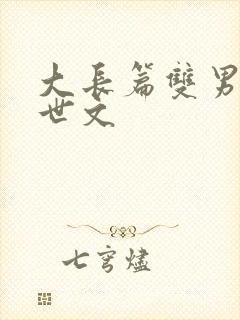 大長篇雙男
世文
七穹燼